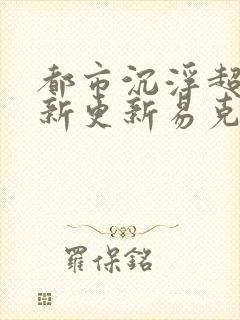 都市沉浮超
新更新易克
羅保銘